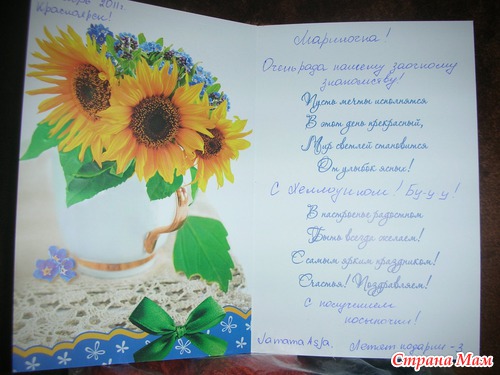 2011г
Красноярск!
Мариночка!
Очень рада нашему заочному
знакомству!
Пусть мечты исполнятся
В этот день прекрасный,
Мир светлей становится
От улыбок ясных!
С Хеллоуином! Бу-у-у!
В настроенье радостном
Быть всегда желаем!
С самым ярким праздником!
Счастья! Поздравляем!
С получением
посылочки!
Jamama Asja. Летят подарки - 3
Страна Мам